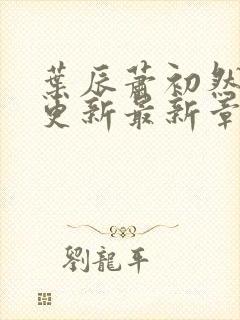 葉辰蕭初然
更新最新章
劉龍平